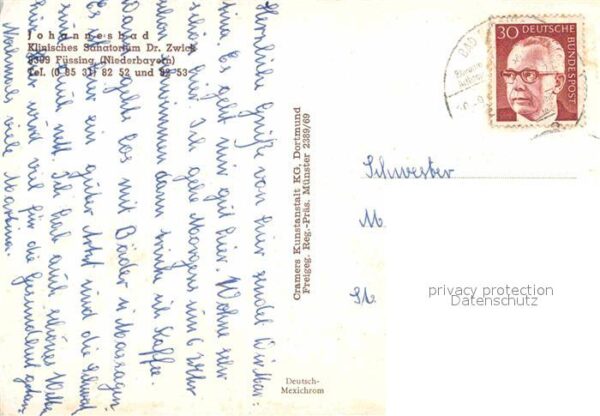 Johannesbad
Klinisches Sanatorium Dr. Zwick
8399 Füssing (Niederbayern)
Tel. (0 85 31) 82 52 und 82 53
Herzliche Grüße von hier sendet Dir Mar-
tina. Es geht mir gut hier. Wohne sehr
schön hier. Ich gehe Morgens um 6 Uhr
schwimmen dann trinke ich Kaffee.
Dann geht es los mit Bäder u Massagen
Es ist hier ein guter Arzt und die
auch nett. Ich hab auch schönes
hier wird viel für die Gesundheit getan
Nochmals viele
Martina.
Cramers Kunstanstalt KG, Dortmund
Freigeg. Reg.-Präs. Münster 2389/69
Deutsch-
Mexichrom
30 DEUTSCHE
BUNDESPOST
BAD
Schwester
M.
St.
privacy protection
Datenschutz